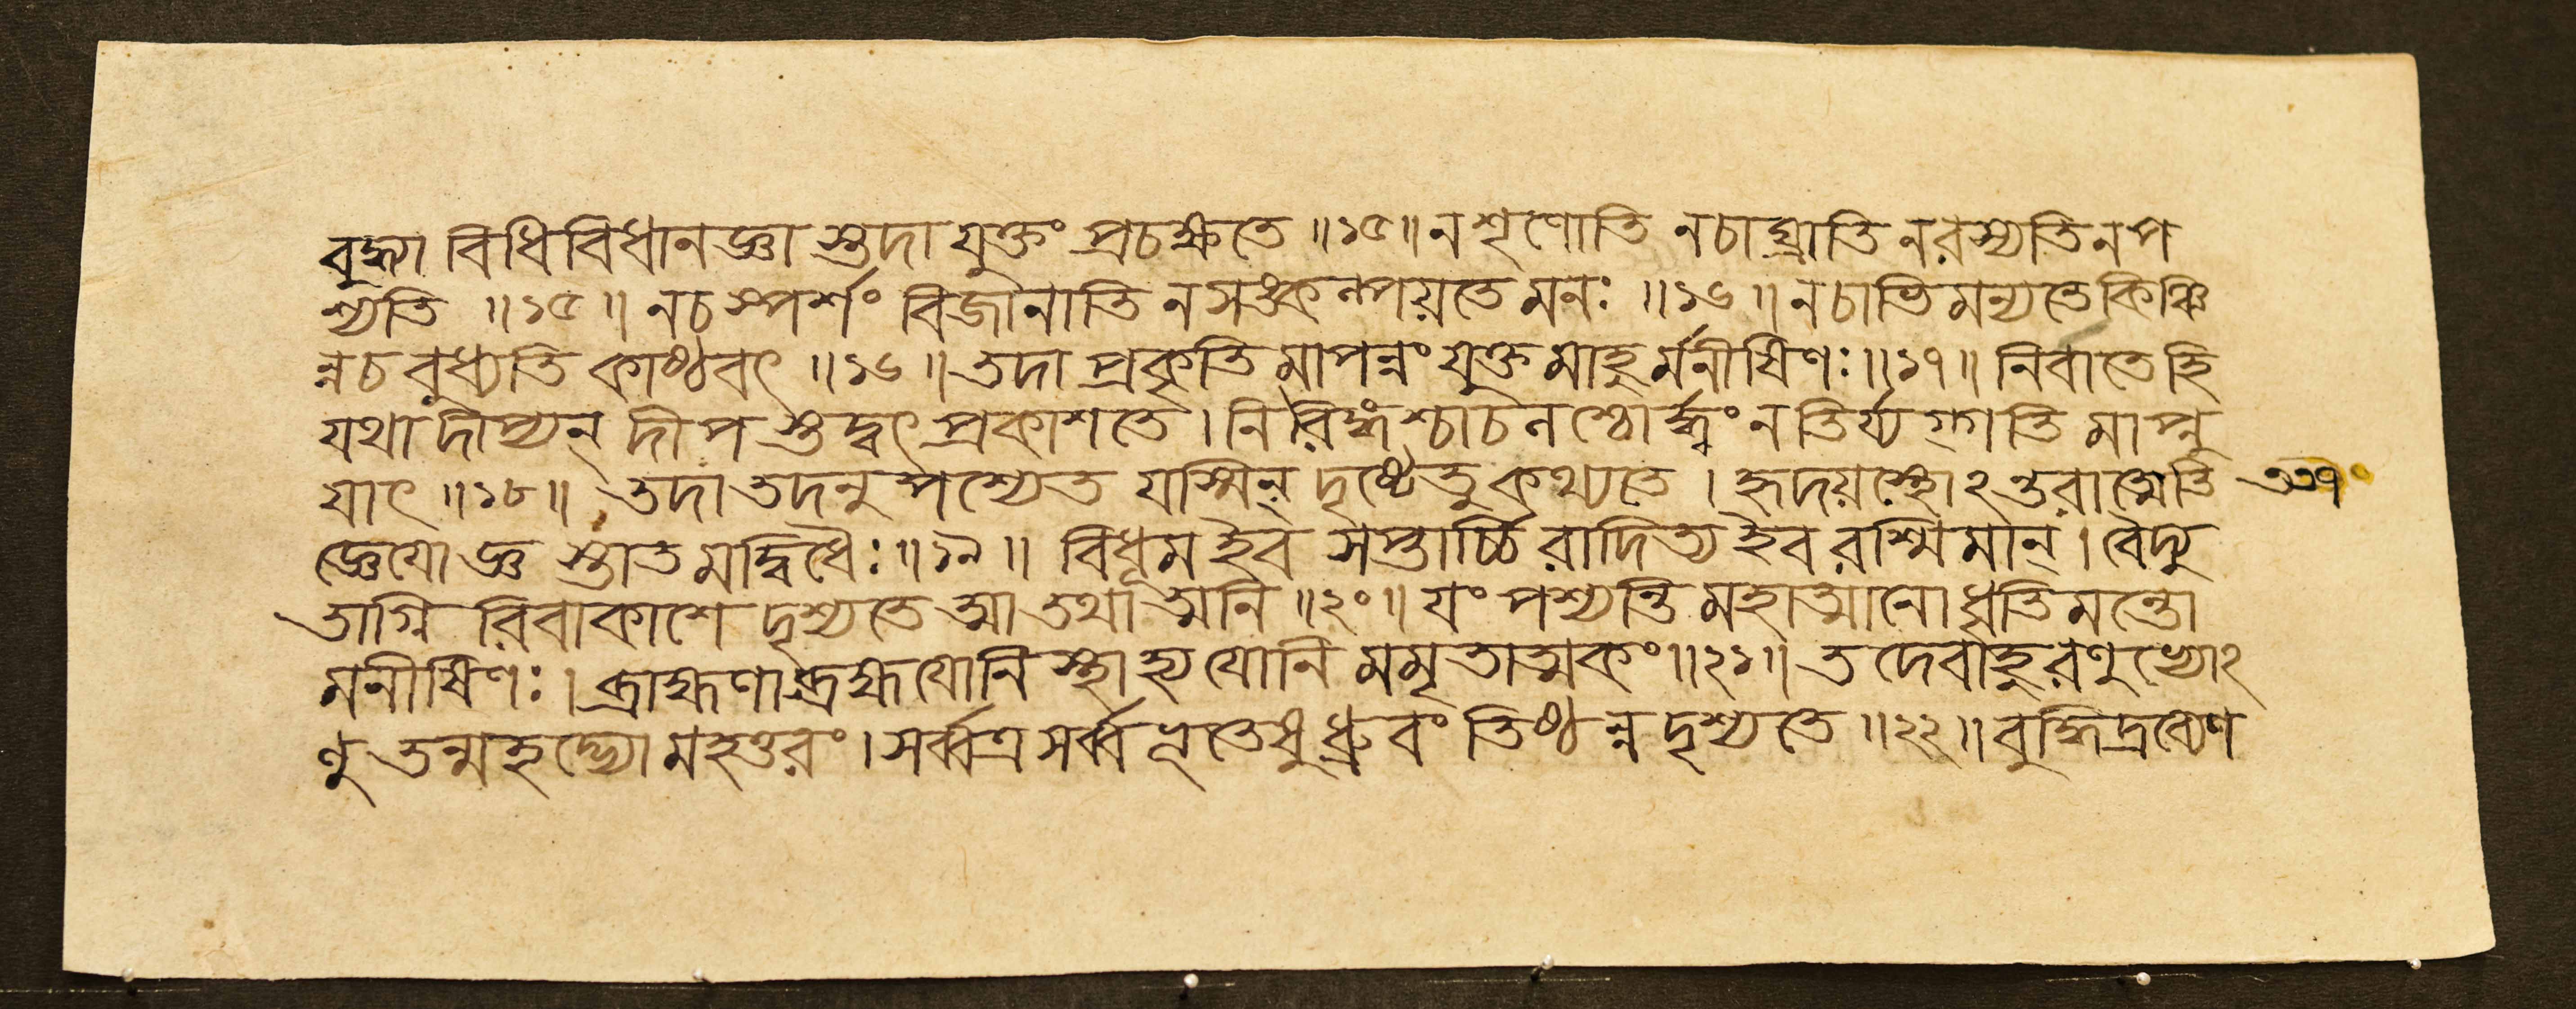 বুদ্ধ্যা বিধিবিধানজ্ঞা স্তদা যুক্তং প্রচক্ষতে ॥১৫॥ ন শৃণোতি ন চাঘ্রাতি ন রস্যতি ন প
শ্যতি ॥১৫॥ ন চ স্পর্শং বিজানাতি ন সঙ্কল্পয়তে মনঃ ॥১৬॥ ন চাভিমন্যতে কিঞ্চি
ন্ন চ বুধ্যতি কাষ্ঠবৎ ॥১৬॥ তদা প্রকৃতি মাপন্নং যুক্ত মাহু র্মনীষিণঃ ॥১৭॥ নিবাতে হি
যথা দীপ্যন্ দীপ স্তদ্বৎ প্রকাশতে । নিরিঙ্গশ্চাচলশ্চোর্দ্ধ্বং ন তির্য্যগ্গতি মাপ্নু
যাৎ ॥১৮॥ তদা তদনুপশ্যেত যস্মিন্ দৃষ্টেতু কথ্যতে । হৃদয়স্থোঽন্তরাত্মেতি
জ্ঞেযো জ্ঞ স্তাত মদ্বিধৈঃ ॥১৯॥ বিধূম ইব সপ্তার্চ্চি রাদিত্য ইব রশ্মিমান্ । বৈদ্যু
তাগ্নি রিবাকাশে দৃশ্যতে আ তথাত্মনি ॥২০॥ যং পশ্যন্তি মহাত্মানো ধৃতিমন্তো
মনীষিণঃ । ব্রাহ্মণা ব্রহ্মযোনি স্থা হ্যযোনি মমৃতাত্মকং ॥২১॥ ত দেবাহু রণুভ্যোঽ
ণু তন্মহদ্ভ্যো মহত্তরং । সর্ব্বত্র সর্ব্বভূতেষু ধ্রুবং তিষ্ঠ ন্ন দৃশ্যতে ॥২২॥ বুদ্ধিদ্রব্যেণ